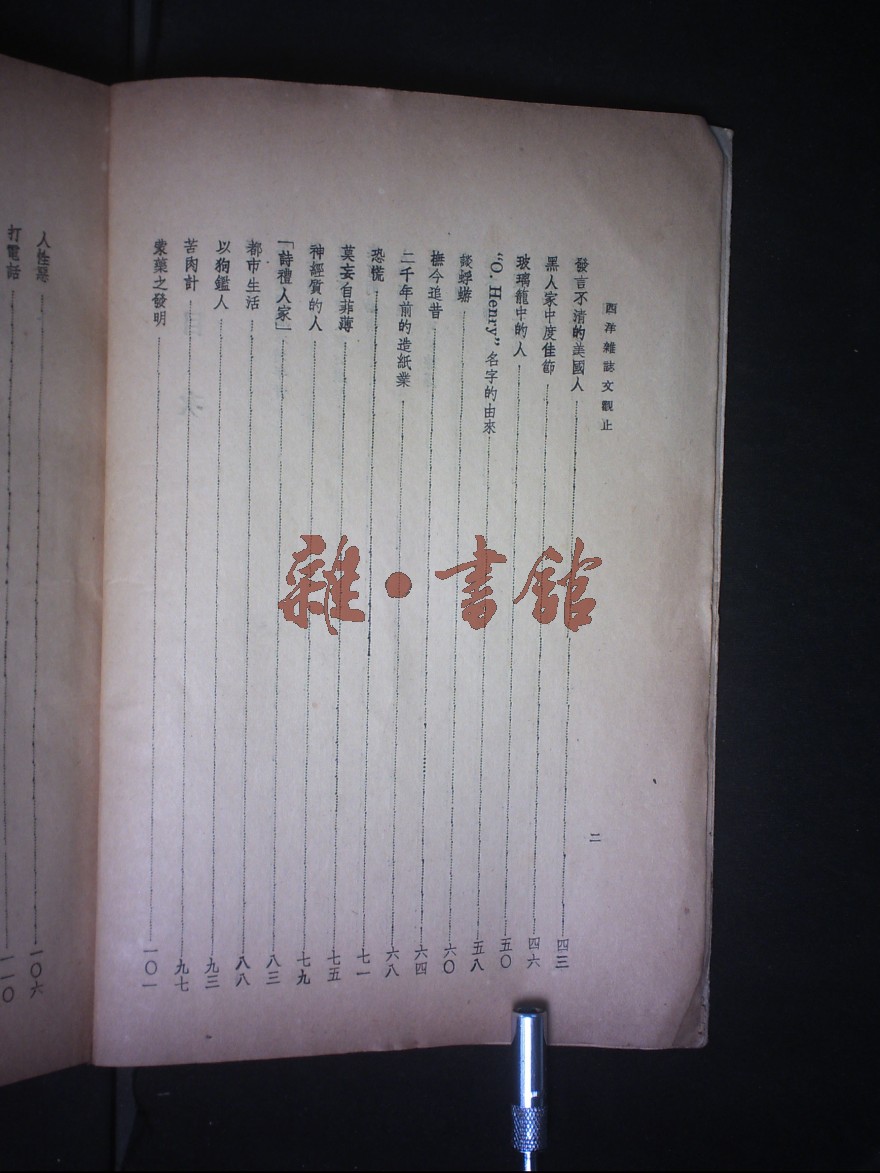 西洋雜誌文觀止
二
發言不清的美國人 四三
黑人家中度佳節 四六
玻璃籠中的人 五〇
“O. Henry”名字的由來 五八
談蜉蝣 六〇
撫今追昔 六四
二千年前的造紙業 六八
恐慌 七一
莫妄自菲薄 七五
神經質的人 七九
「詩禮人家」 八三
都市生活 八八
以狗鑑人 九三
苦肉計 九七
蒙藥之發明 一〇一
人性惡 一〇六
打電話 一一〇
雜•書館